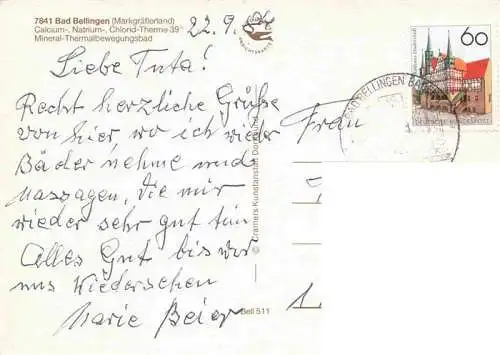 7841 Bad Bellingen (Markgräflerland)
Calcium-, Natrium-, Chlorid-Therme 39°
Mineral-Thermalbewegungsbad
22.9.
Liebe Tuta!
Recht herzliche Grüße
von hier, wo ich wieder
Bäder nehme und
Massagen, die mir
wieder sehr gut tun
Alles Gute bis wir
uns wiedersehen
Marie Beier
Frau
© Cramers Kunstanstalt Dortmund
Bell 511
60
BAD BELLINGEN